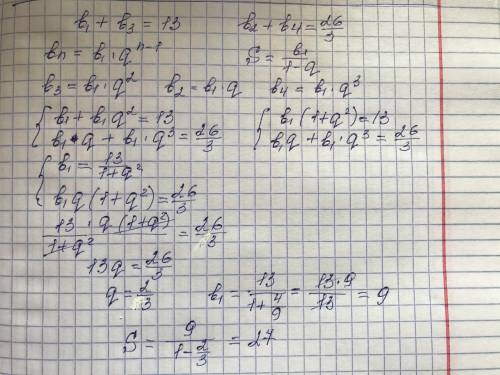 b₁ + b₃ = 13 b₂ + b₄ = 26/3
bn = b₁ · q^(n-1) S = b₁/(1-q)
b₃ = b₁ · q² b₂ = b₁ · q b₄ = b₁ · q³
{ b₁ + b₁q² = 13 { b₁(1+q²) = 13
b₁ · q + b₁ · q³ = 26/3 b₁q + b₁ · q³ = 26/3
{ b₁ = 13/(1+q²)
b₁q(1+q²) = 26/3
13/(1+q²) · q(1+q²) = 26/3
13q = 26/3
q = 2/3 b₁ = 13/(1+4/9) = 13·9/13 = 9
S = 9/(1-2/3) = 27